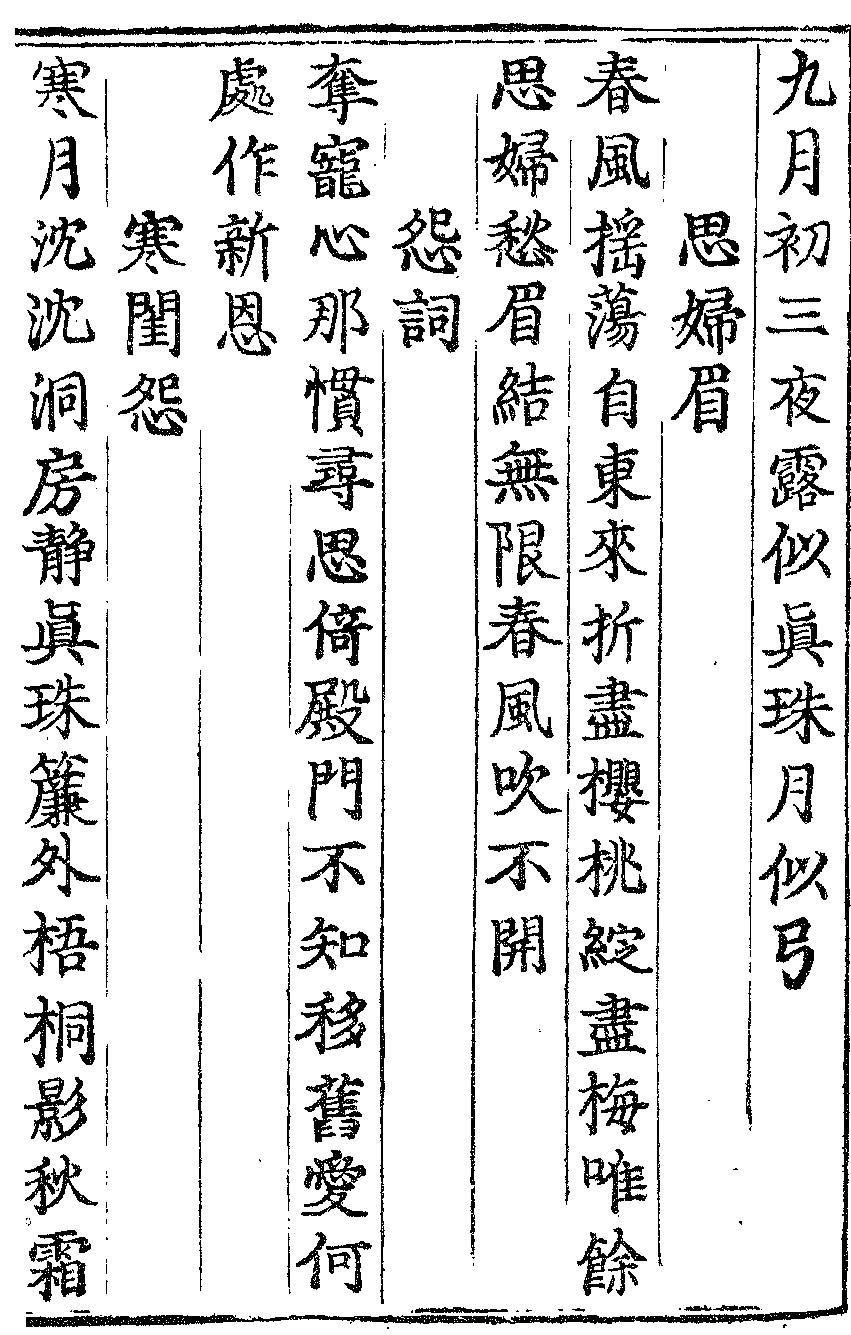 九月初三夜露似眞珠月似弓
思婦眉
春風揺蕩自東來折盡櫻桃綻盡梅唯餘
思婦愁眉結無限春風吹不開
怨詞
奪寵心那慣尋思倚殿門不知移舊愛何
處作新恩
寒閨怨
寒月沈沈洞房靜眞珠簾外梧桐影秋霜